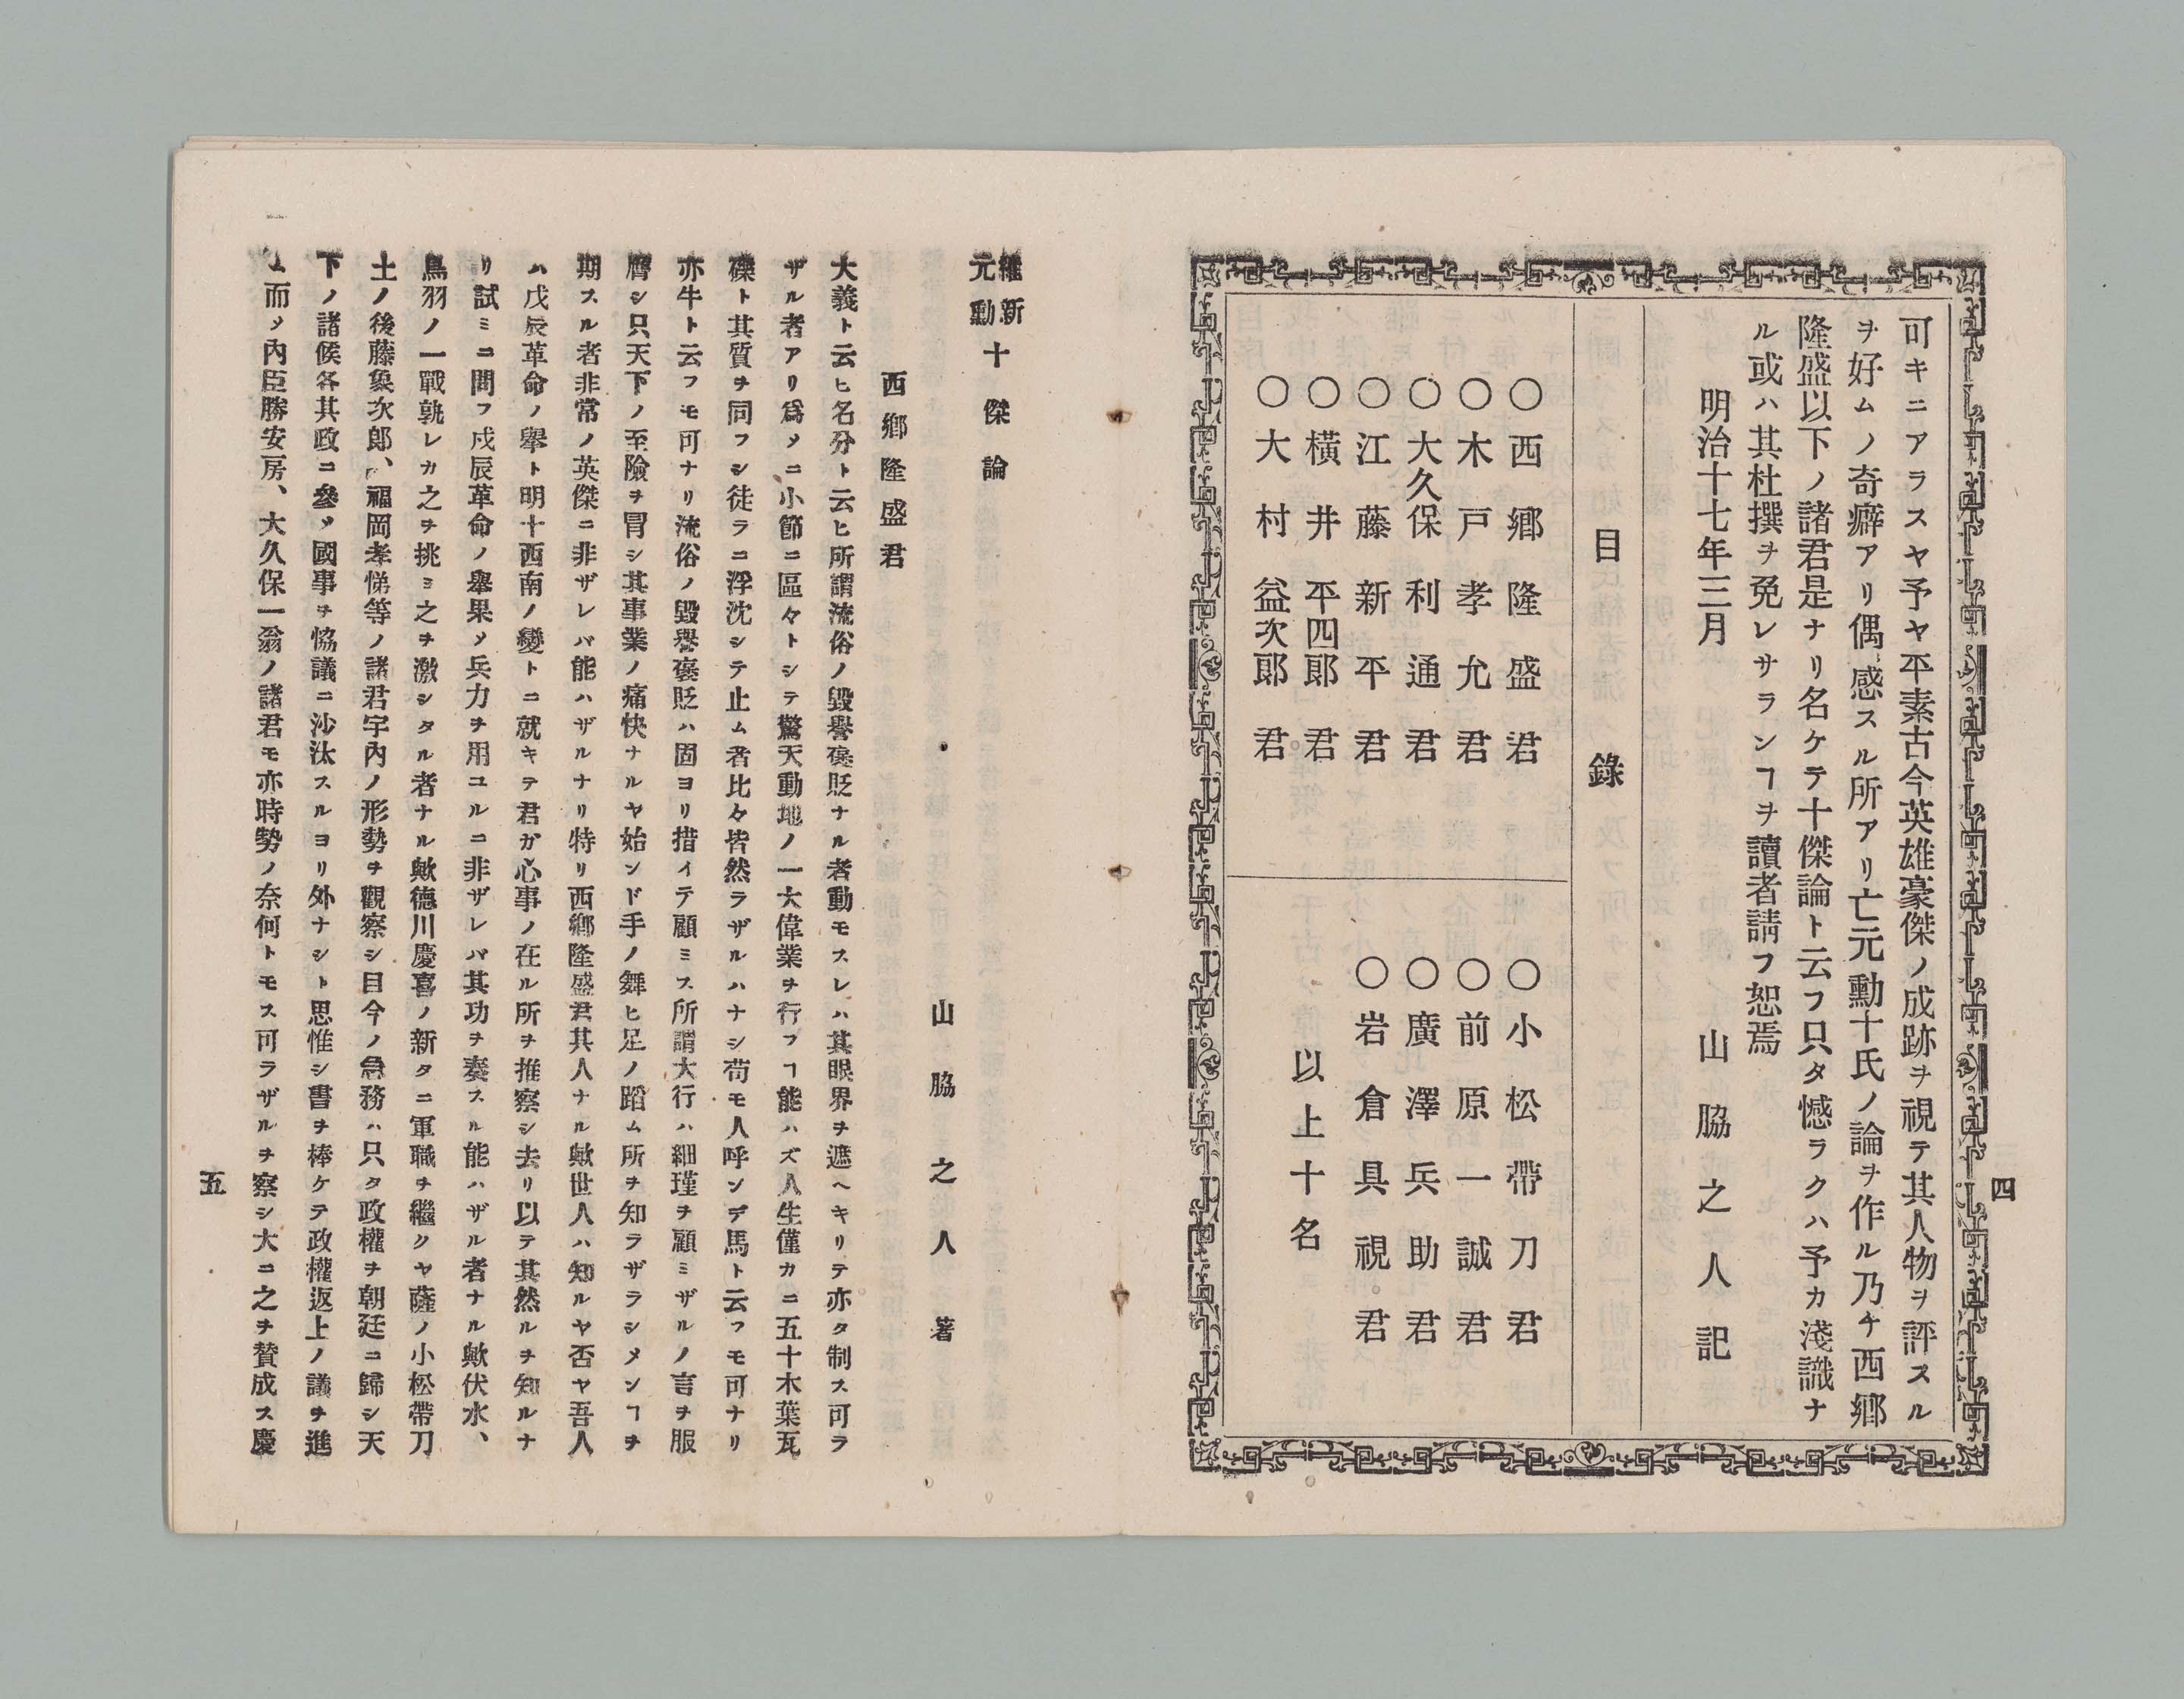 四
可キニアラスヤ予ヤ平素古今英雄豪傑ノ成跡ヲ視テ其人物ヲ評スル
ヲ好ムノ奇癖アリ偶感スル所アリ亡元勳十氏ノ論ヲ作ル乃チ西郷
隆盛以下ノ諸君是ナリ名ケテ十傑論ト云フ只タ憾ラクハ予カ淺識ナ
ル或ハ其杜撰ヲ免レサランヿヲ讀者請フ恕焉
明治十七年三月　山脇之人記
目錄
○西郷隆盛君
○木戸孝允君
○大久保利通君
○江藤新平君
○橫井平四郎君
○大村益次郎君
○小松帶刀君
○前原一誠君
○廣澤兵助君
○岩倉具視君
以上十名
維新元勳十傑論
山脇之人著
西郷隆盛君
大義ト云ヒ名分ト云ヒ所謂流俗ノ毀譽褒貶ナル者動モスレハ其眼界ヲ遮ヘキリテ亦タ制ス可ラ
ザル者アリ爲メニ小節ニ區々トシテ驚天動地ノ一大偉業ヲ行フヿ能ハズ人生僅カニ五十木葉瓦
礫ト其質ヲ同フシ徒ラニ浮沈シテ止ム者比々皆然ラザルハナシ苟モ人呼ンデ馬ト云フモ可ナリ
亦牛ト云フモ可ナリ流俗ノ毀譽褒貶ハ固ヨリ措イテ顧ミス所謂大行ハ細瑾ヲ顧ミザルノ言ヲ服
膺シ只天下ノ至險ヲ冒シ其事業ノ痛快ナルヤ始ンド手ノ舞ヒ足ノ蹈ム所ヲ知ラザラシメンヿヲ
期スル者非常ノ英傑ニ非ザレバ能ハザルナリ特リ西郷隆盛君其人ナル歟世人ハ知ルヤ否ヤ吾人
ハ戊辰革命ノ擧ト明十西南ノ變トニ就キテ君ガ心事ノ在ル所ヲ推察シ去リ以テ其然ルヲ知ルナ
リ試ミニ問フ戊辰革命ノ擧果メ兵力ヲ用ユルニ非ザレバ其功ヲ奏スル能ハザル者ナル歟伏水、
鳥羽ノ一戰孰レカ之ヲ挑ミ之ヲ激シタル者ナル歟德川慶喜ノ新タニ軍職ヲ繼クヤ薩ノ小松帶刀
土ノ後藤象次郎、福岡孝悌等ノ諸君宇內ノ形勢ヲ觀察シ目今ノ急務ハ只タ政權ヲ朝廷ニ歸シ天
下ノ諸候各其政ニ參メ國事ヲ恊議ニ沙汰スルヨリ外ナシト思惟シ書ヲ棒ケテ政權返上ノ議ヲ進
而メ內臣勝安房、大久保一翁ノ諸君モ亦時勢ノ奈何トモス可ラザルヲ察シ大ニ之ヲ賛成ス慶
五